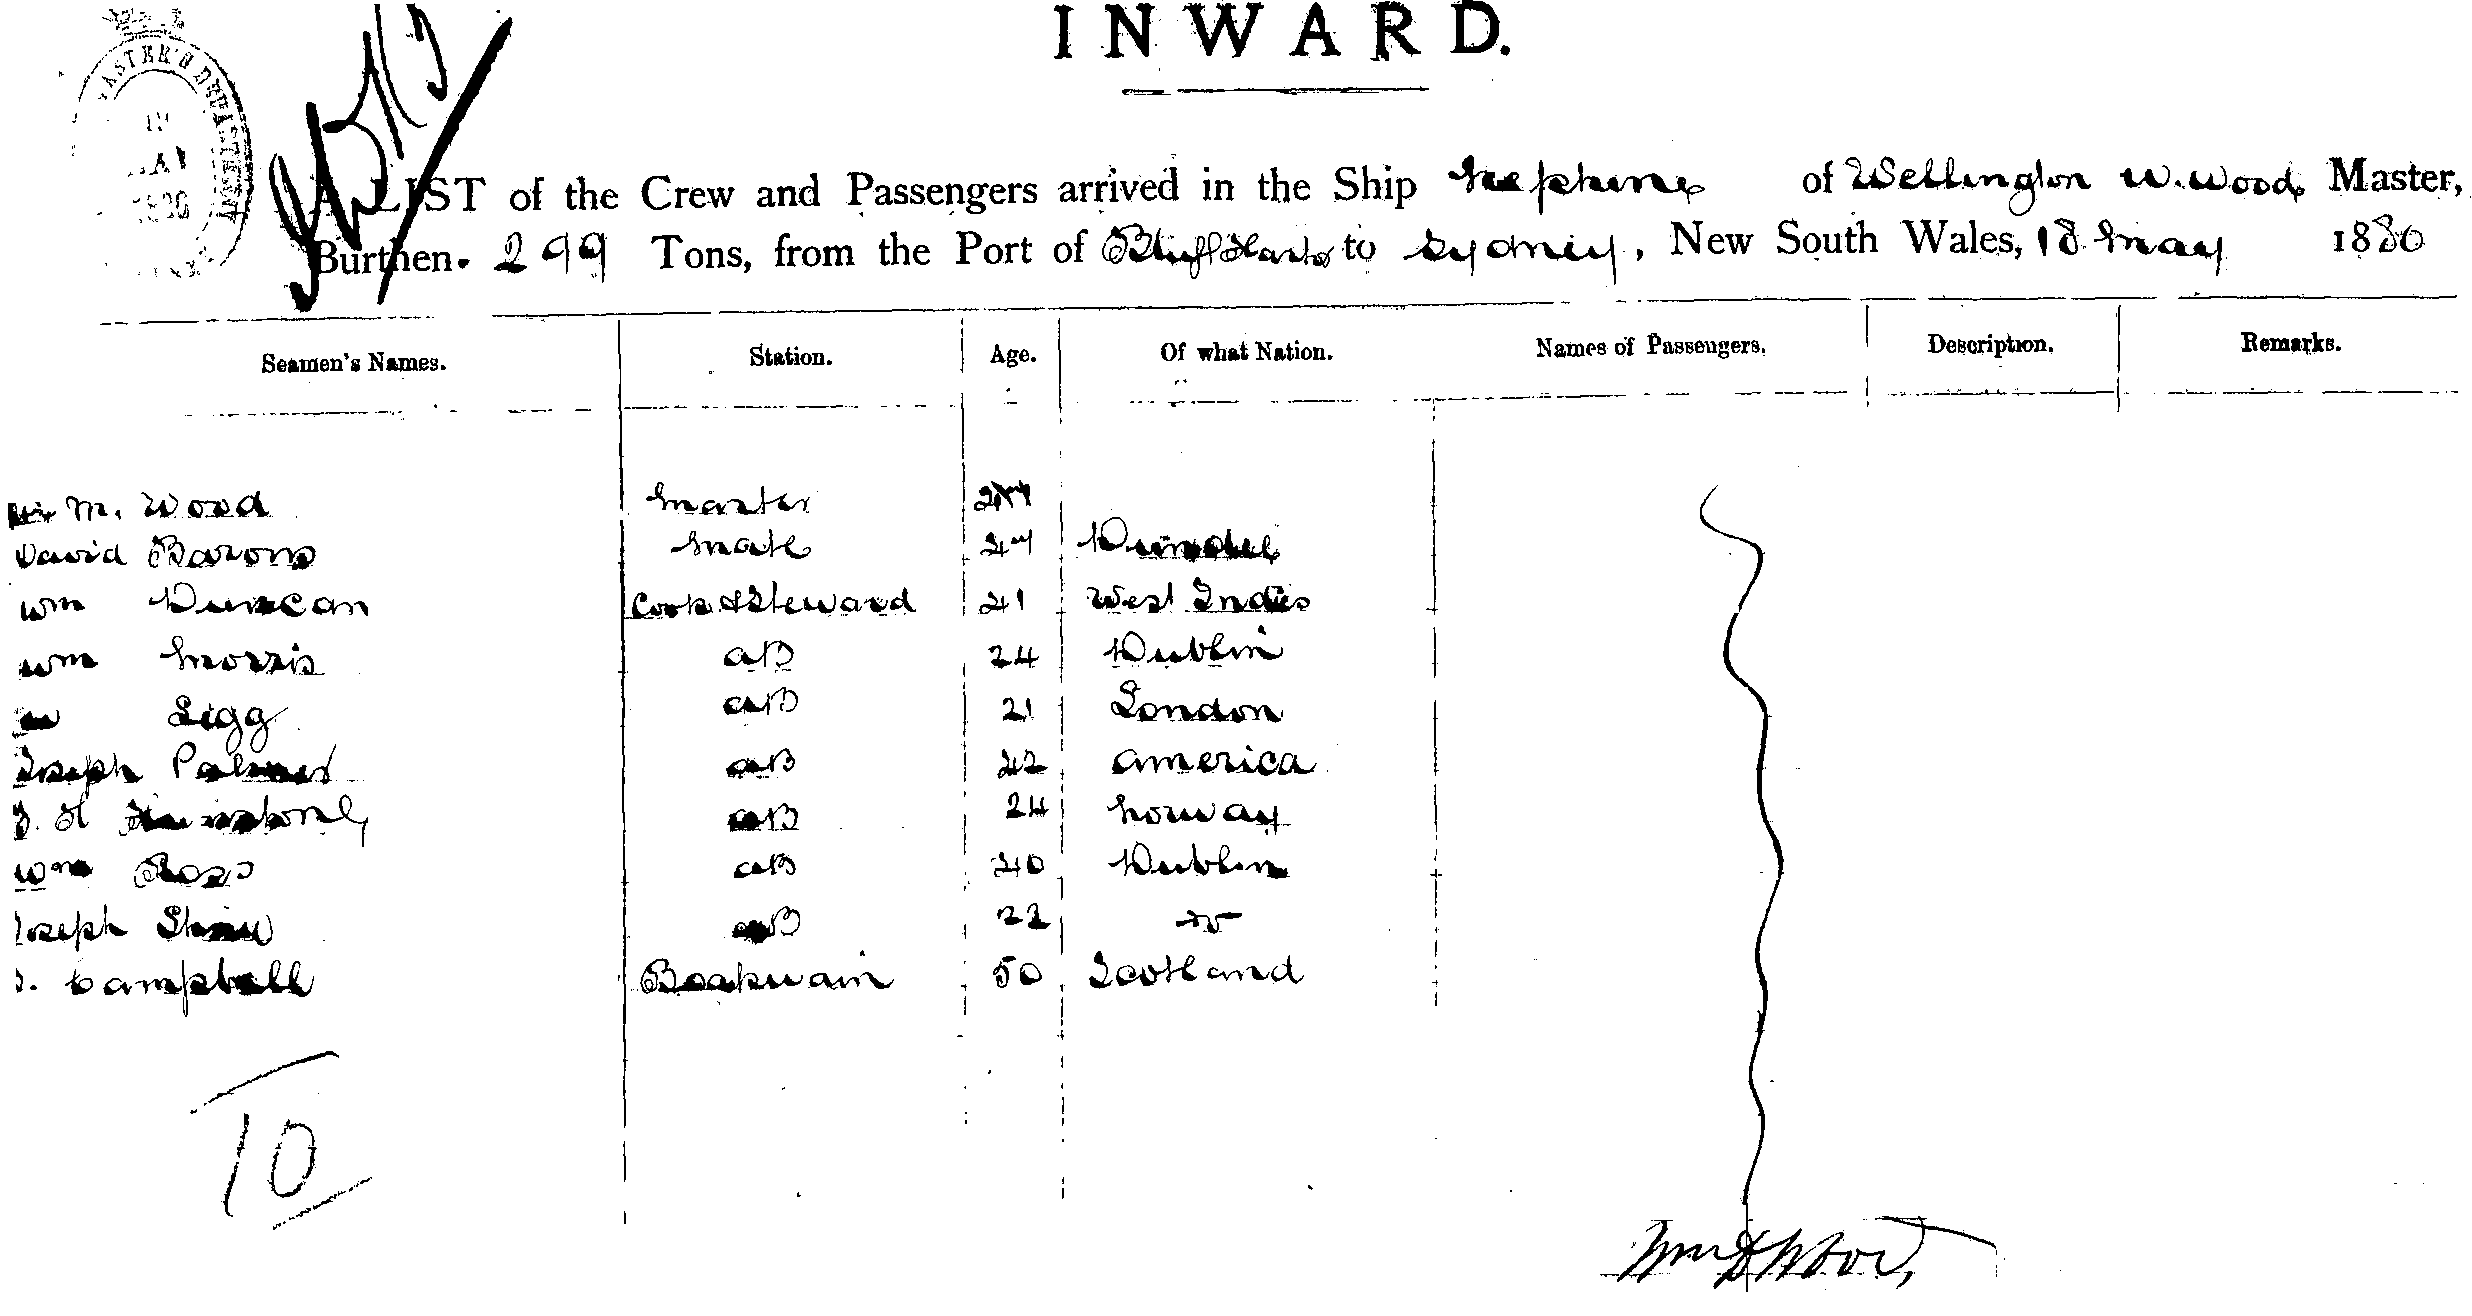 INWARD.
A LIST of the Crew and Passengers arrived in the Ship Nephine of Wellington W. Wood Master,
Burthen. 299 Tons, from the Port of Bluff Harbr to Sydney, New South Wales, 18 May 1880
Seamen's Names. Station. Age. Of what Nation. Names of Passengers. Description. Remarks.
M. Wood Master
David Barons Mate Dundee
Wm Duncan Cook & Steward 21 West Indies
Wm Morris AB 24 Dublin
Ligg AB 21 London
Joseph Palmer AB 22 America
AB 24 Norway
Wm Ross AB 20 Dublin
Joseph Shaw AB 22 do
Campbell Boatswain 50 Scotland
10